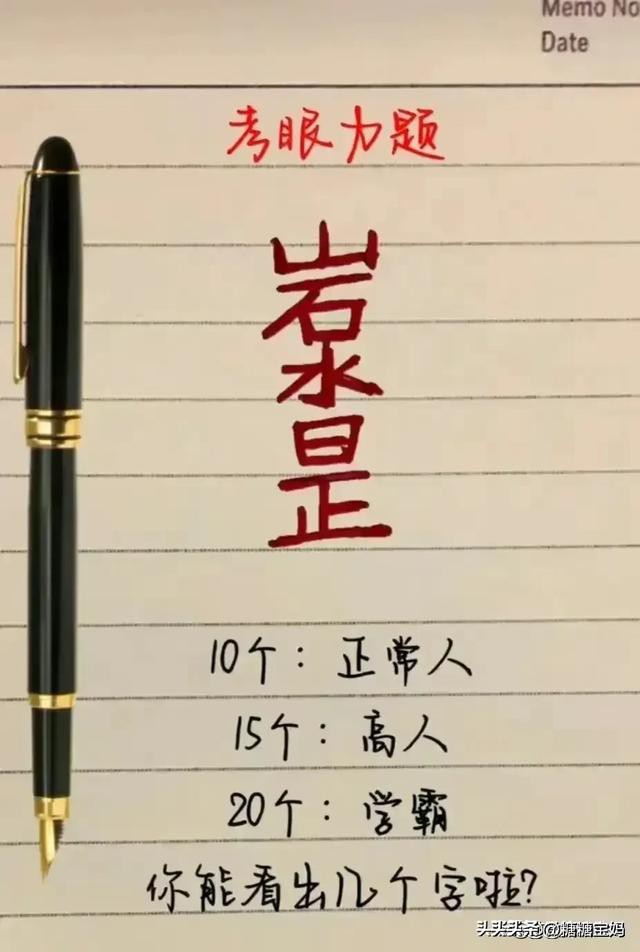 Memo No
Date
考眼力题
山
石
水
日
正
10个：正常人
15个：高人
20个：学霸
你能看出几个字啦?
头条@糖糖宝妈